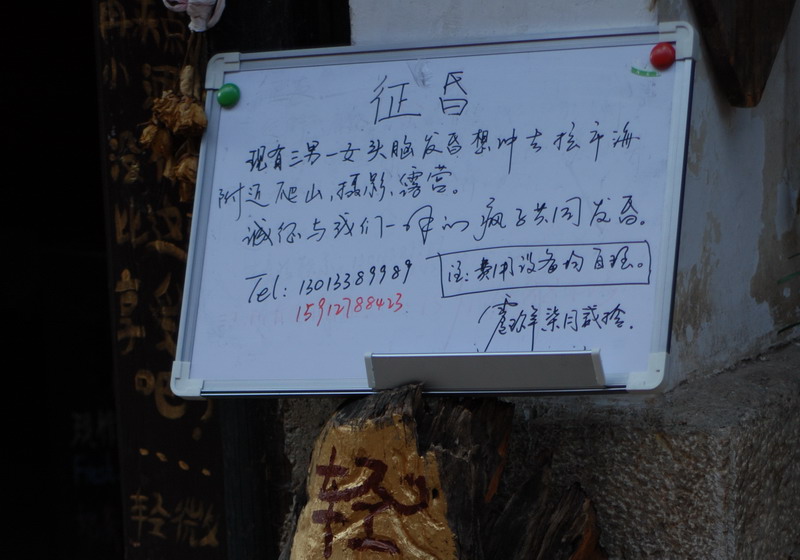 征昏
现有三男一女头脑发昏想冲去拉市海
附近爬山、摄影、露营。
诚征与我们一样的疯子共同发昏。
Tel: 13013389989
15912788423
注: 费用设备均自理。
柒月贰拾.
享受
吧?
....
轻微
轻